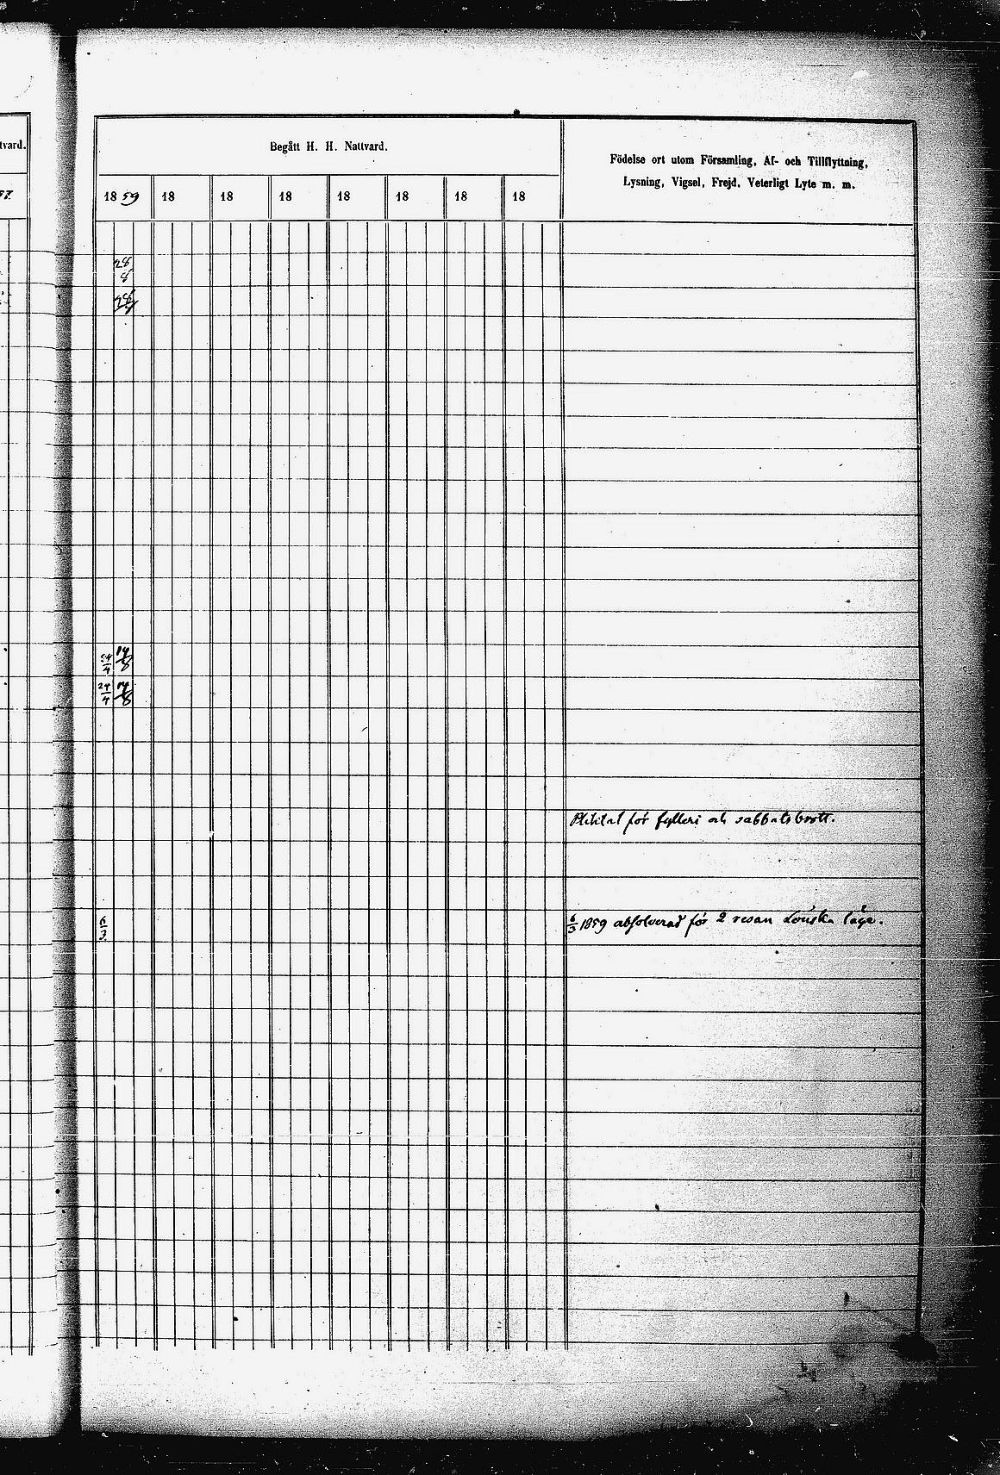 tvard.
Begått H. H. Nattvard.
Födelse ort utom Församling, Af- och Tillflyttning,
Lysning, Vigsel, Frejd, Veterligt Lyte m. m.
57.
18 59 18 18 18 18 18 18 18
28
8
28
24/4 14/8
24/4 14/8
för fylleri och sabbatsbrott.
6/3
6/3 1859 absolverad för 2 resan Lönska läge.